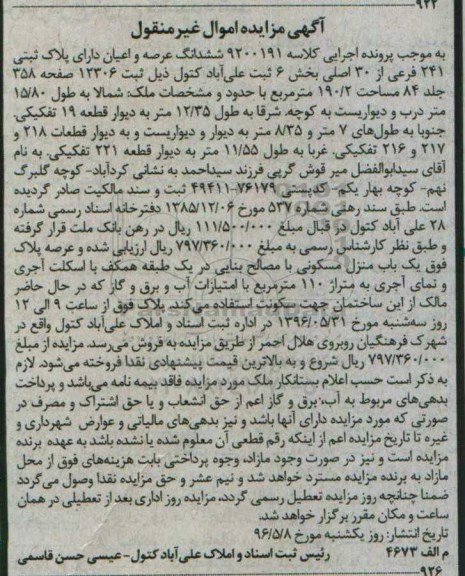 ۹۲۴
آگهی مزایده اموال غیرمنقول
به موجب پرونده اجرایی کلاسه ۹۲۰۰۱۹۱ ششدانگ عرصه و اعیان دارای پلاک ثبتی
۲۴۱ فرعی از ۳۰ اصلی بخش ۶ ثبت علی‌آباد کتول ذیل ثبت ۱۲۳۰۶ صفحه ۳۵۸
جلد ۸۴ مساحت ۱۹۰/۲ مترمربع با حدود و مشخصات ملک: شمالا به طول ۱۵/۸۰
متر درب و دیواریست به کوچه. شرقا به طول ۱۲/۳۵ متر به دیوار قطعه ۱۹ تفکیکی.
جنوبا به طول‌های ۷ متر و ۸/۳۵ متر به دیوار و دیواریست و به دیوار قطعات ۲۱۸ و
۲۱۷ و ۲۱۶ تفکیکی. غربا به طول ۱۱/۵۵ متر به دیوار قطعه ۲۲۱ تفکیکی. به نام
آقای سیدابوالفضل میر قوش گرپی فرزند سیداحمد به نشانی کردآباد- کوچه گلبرگ
نهم- کوچه بهار یکم- کدپستی ۷۶۱۷۹-۴۹۴۱۱ ثبت و سند مالکیت صادر گردیده
است. طبق سند رهنی شماره ۵۳۷ مورخ ۱۳۸۵/۱۲/۰۶ دفترخانه اسناد رسمی شماره
۲۸ علی آباد کتول در قبال مبلغ ۱۱۱/۵۰۰/۰۰۰ ریال در رهن بانک ملت قرار گرفته
و طبق نظر کارشناس رسمی به مبلغ ۷۹۷/۳۶۰/۰۰۰ ریال ارزیابی شده و عرصه پلاک
فوق یک باب منزل مسکونی با مصالح بنایی در یک طبقه همکف با اسکلت آجری
و نمای آجری به متراژ ۱۱۰ مترمربع با امتیازات آب و برق و گاز که در حال حاضر
مالک از این ساختمان جهت سکونت استفاده می‌کند. پلاک فوق از ساعت ۹ الی ۱۲
روز سه‌شنبه مورخ ۱۳۹۶/۰۵/۳۱ در اداره ثبت اسناد و املاک علی‌آباد کتول واقع در
شهرک فرهنگیان روبروی هلال احمر از طریق مزایده به فروش می‌رسد. مزایده از مبلغ
۷۹۷/۳۶۰/۰۰۰ ریال شروع و به بالاترین قیمت پیشنهادی نقدا فروخته می‌شود. لازم
به ذکر است حسب اعلام بستانکار ملک مورد مزایده فاقد بیمه نامه می‌باشد و پرداخت
بدهی‌های مربوط به آب، برق و گاز اعم از حق انشعاب و یا حق اشتراک و مصرف در
صورتی که مورد مزایده دارای آنها باشد و نیز بدهی‌های مالیاتی و عوارض شهرداری و
غیره تا تاریخ مزایده اعم از اینکه رقم قطعی آن معلوم شده یا نشده باشد به عهده برنده
مزایده است و نیز در صورت وجود مازاد، وجوه پرداختی بابت هزینه‌های فوق از محل
مازاد به برنده مزایده مسترد خواهد شد و نیم عشر و حق مزایده نقدا وصول می‌گردد
ضمنا چنانچه روز مزایده تعطیل رسمی گردد، مزایده روز اداری بعد از تعطیلی در همان
ساعت و مکان مقرر برگزار خواهد شد.
تاریخ انتشار: روز یکشنبه مورخ ۹۶/۵/۸
م الف ۴۶۷۳ رئیس ثبت اسناد و املاک علی‌آباد کتول - عیسی حسن قاسمی
۹۲۶